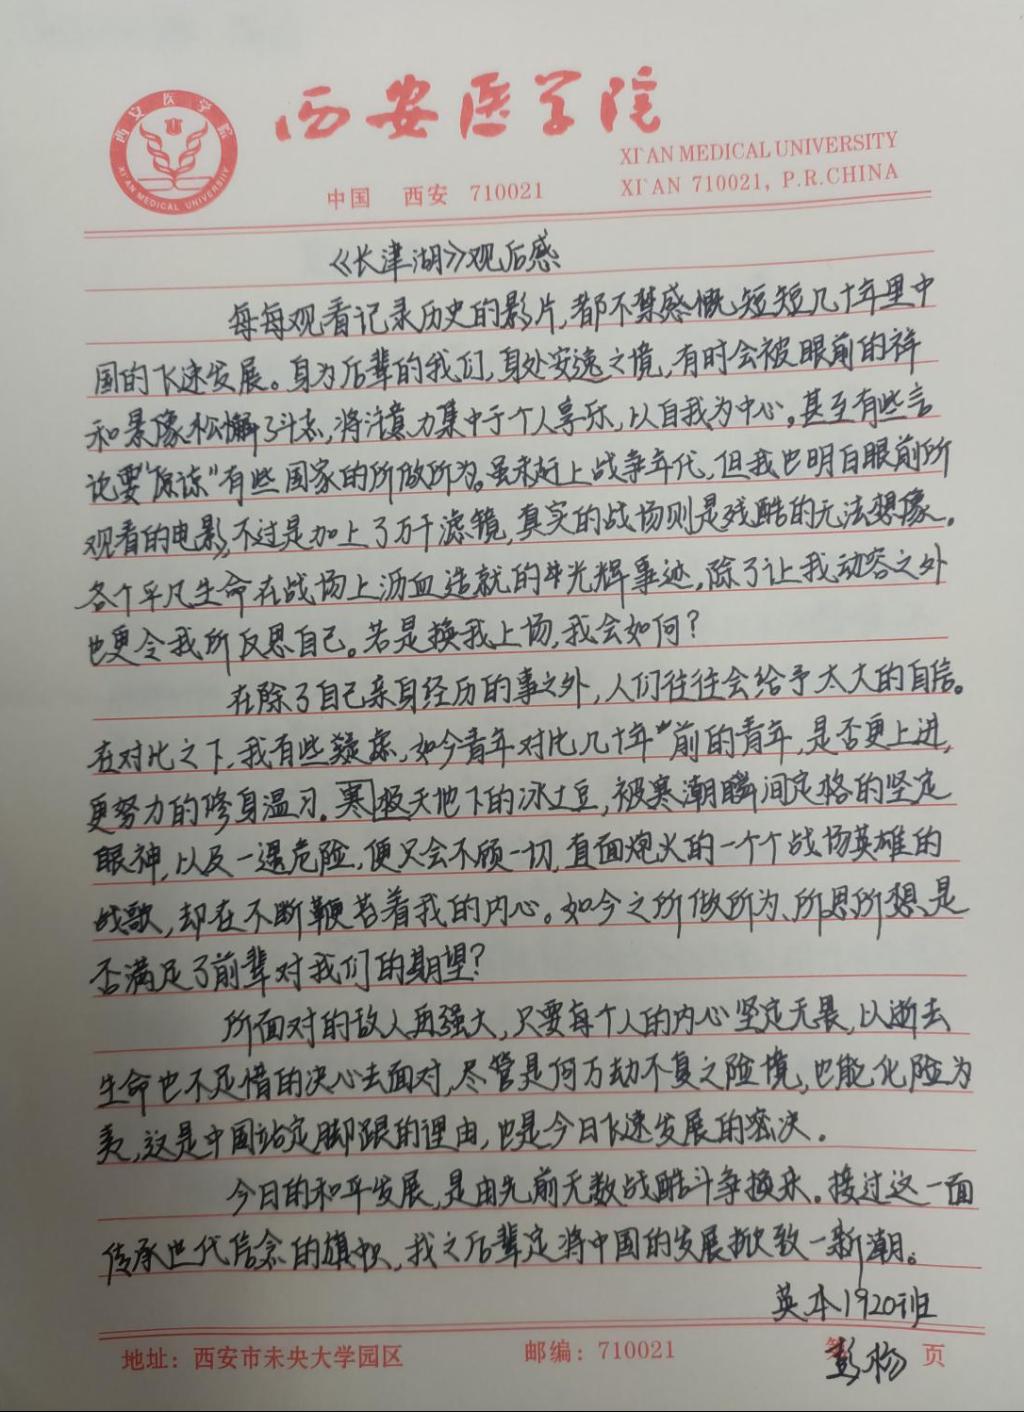 西安医学院
XI'AN MEDICAL UNIVERSITY
中国 西安 710021
XI'AN 710021, P.R.CHINA
西安医学院
XI'AN MEDICAL UNIVERSITY
《长津湖》观后感
每每观看记录历史的影片,都不禁感慨短短几十年里中
国的飞速发展。身为后辈的我们,身处安逸之境,有时会被眼前的祥
和景像松懈了斗志,将注意力集中于个人享乐,以自我为中心。甚至有些言
论要"原谅"有些国家的所做所为。虽未赶上战争年代,但我也明白眼前所
观看的电影,不过是加上了万千滤镜,真实的战场则是残酷的无法想像。
各个平凡生命在战场上沥血造就的光辉事迹,除了让我动容之外
也更令我所反思自己。若是换我上场,我会如何?
在除了自己亲身经历的事之外,人们往往会给予太大的自信。
在对比之下,我有些疑虑,如今青年对比几十年前的青年,是否更上进,
更努力的修身温习。寒极天地下的冰土豆,被寒潮瞬间定格的坚定
眼神,以及一遇危险,便只会不顾一切,直面炮火的一个个战场英雄的
战歌,却在不断鞭笞着我的内心。如今之所做所为、所思所想,是
否满足了前辈对我们的期望?
所面对的敌人再强大,只要每个人的内心坚定无畏,以逝去
生命也不足惜的决心去面对,尽管是何万劫不复之险境,也能化险为
夷,这是中国站定脚跟的理由,也是今日飞速发展的密决。
今日的和平发展,是由先前无数战酷斗争换来。接过这一面
传承世代信念的旗帜,我之后辈定将中国的发展掀致一新潮。
英本1920班
彭杨
地址:西安市未央大学园区 邮编:710021 页